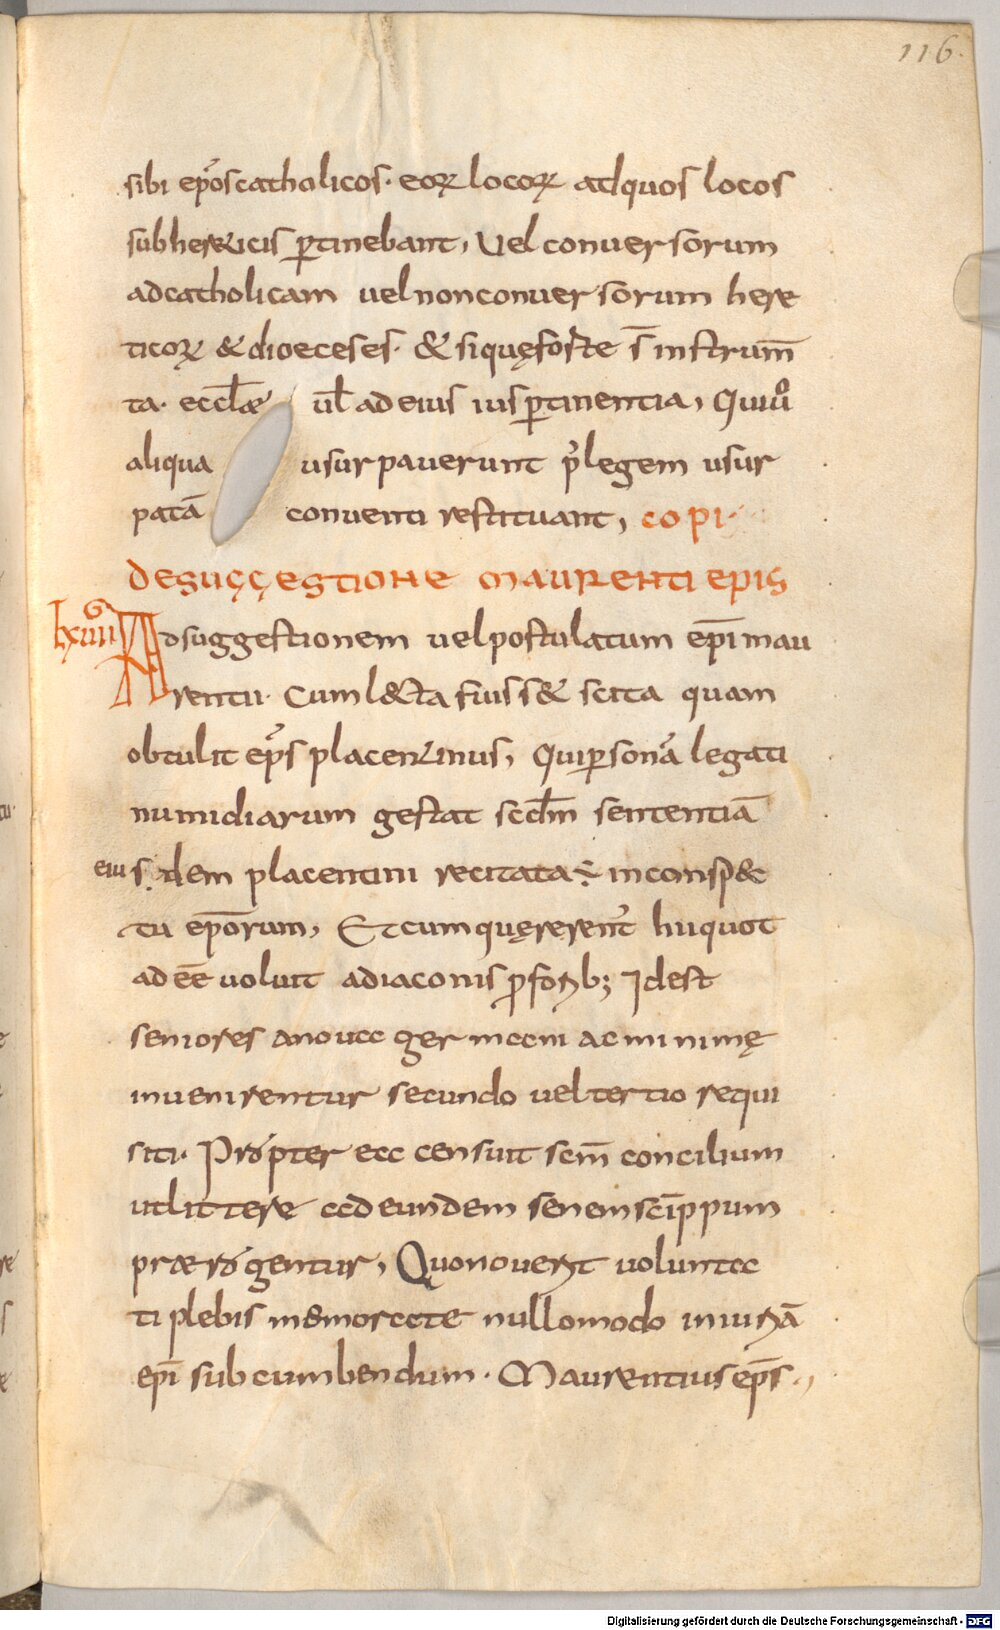 116.
sibi ep̃os catholicos· eoꝝ locoꝝ ad quos locos
sub hereticis ꝑtinebant, Vel conuersorum
ad catholicam uel non conuersorum here
ticoꝝ & dioeceses· & si quę forte s̄ instrum̄
ta· eccl̄ae ul̄ ad eius ius ꝑtinentia, Qui uͦ
aliqua usurpauerunt p̃ legem usur
patā conuenti restituant, copi·
DESUÇÇESTIONE MAURENTI EPIS
lxuiiii Ad suggestionem uel postulatum ep̄i mau
rentii· Cum l&ta fuiss& scita quam
obtulit ep̃s placentinus, Qui ꝑsonā legati
numidiarum gestat scd̄m sententiā
eiusdem placentini recitata ÷ in consp&c
tu ep̄orum, Et cum quęrerent᷑ hii quot
adeē uoluit a diaconis ꝓ forib; Idest
seniores a noua germani ac minimę
inuenirentur secundo uel tertio requi
siti· Propter ea censuit scm̄ concilium
ut littere ad eundem senem scīppum
præ rogentur, Quo nouerit uolunta
ti plebis memorate nullomodo iniuriā
ep̄i subcumbendum· Maurentius ep̄s·,
Digitalisierung gefördert durch die Deutsche Forschungsgemeinschaft - DFG